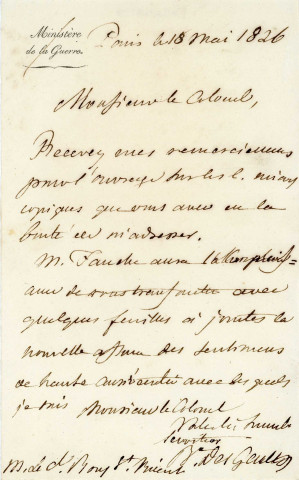 Ministère
de la Guerre.
Paris le 18 Mai 1826
Monsieur le Colonel,
Recevez mes remerciemens
pour l'ouvrage sur les
copiques que vous avez eu la
bonté de m'adresser.
M. Fauche aura la complais=
ance de vous transmettre avec
quelques feuilles à joindre la
nouvelle assurance des sentimens
de haute considération avec lesquels
je suis Monsieur le Colonel
Votre très humble
serviteur
Des Genettes
M. le Cl. Bory St. Vincent